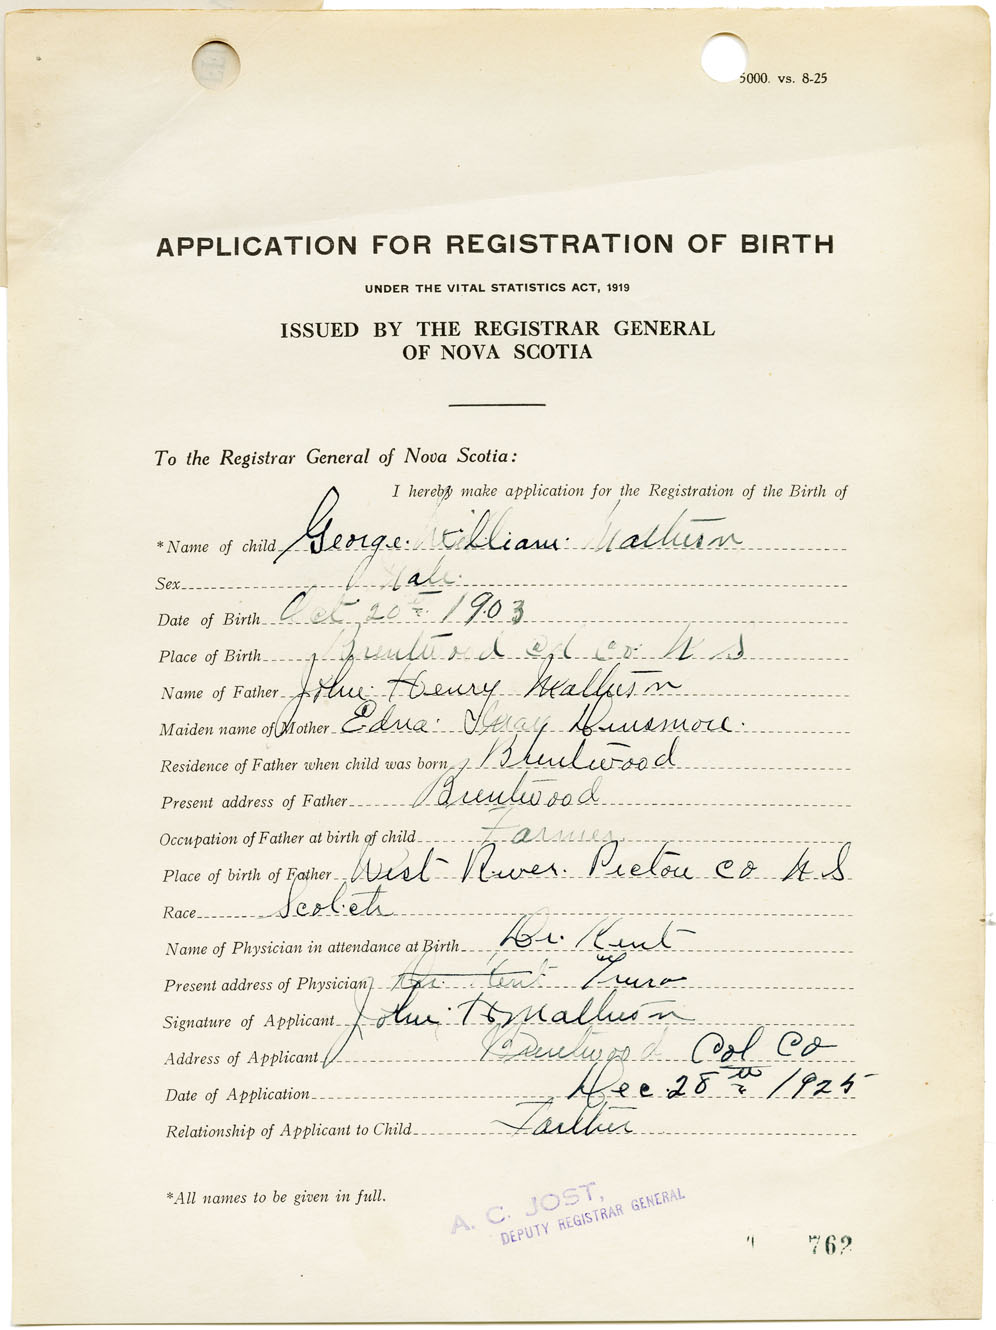 5000. vs. 8-25
APPLICATION FOR REGISTRATION OF BIRTH
UNDER THE VITAL STATISTICS ACT, 1919
ISSUED BY THE REGISTRAR GENERAL
OF NOVA SCOTIA
To the Registrar General of Nova Scotia:
I hereby make application for the Registration of the Birth of
*Name of child George William Matheson
Sex Male
Date of Birth Oct 20th 1903
Place of Birth Brentwood Col Co N S
Name of Father John Henry Matheson
Maiden name of Mother Edna May Dunsmore
Residence of Father when child was born Brentwood
Present address of Father Brentwood
Occupation of Father at birth of child Farmer
Place of birth of Father West River Pictou Co N S
Race Scotch
Name of Physician in attendance at Birth Dr. Kent
Present address of Physician Dr. Kent Truro
Signature of Applicant John H Matheson
Address of Applicant Brentwood Col Co
Date of Application Dec 28th 1925
Relationship of Applicant to Child Farther
*All names to be given in full.
A. C. JOST,
DEPUTY REGISTRAR GENERAL
762